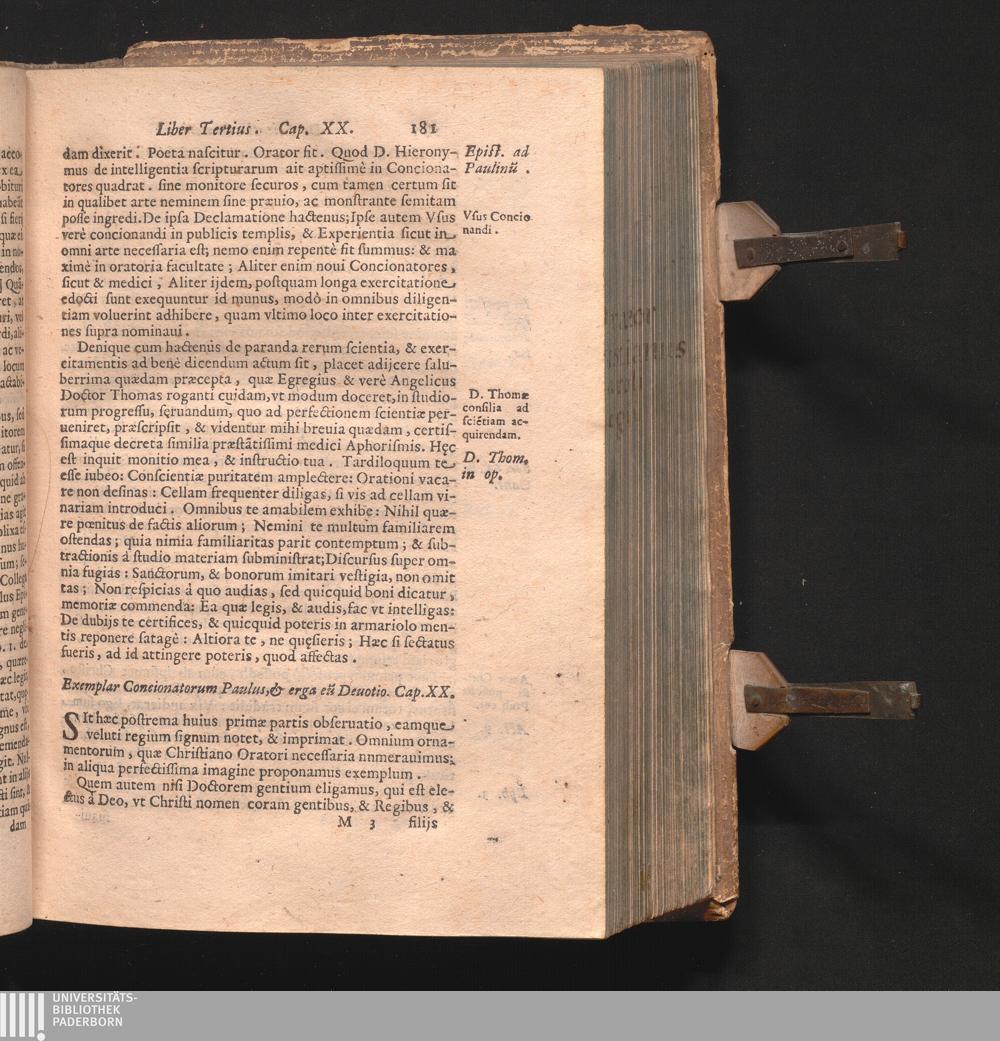 Liber Tertius. Cap. XX. 181
dam dixerit. Poeta naſcitur. Orator fit. Quod D. Hierony-
mus de intelligentia ſcripturarum ait aptiſſimè in Conciona-
tores quadrat. ſine monitore ſecuros, cum tamen certum ſit
in qualibet arte neminem ſine præuio, ac monſtrante ſemitam
poſſe ingredi. De ipſa Declamatione hactenus; Ipſe autem Vſus
verè concionandi in publicis templis, & Experientia ſicut in
omni arte neceſſaria eſt; nemo enim repentè fit ſummus: & ma
ximè in oratoria facultate; Aliter enim noui Concionatores,
ſicut & medici; Aliter ijdem, poſtquam longa exercitatione
edocti ſunt exequuntur id munus, modò in omnibus diligen-
tiam voluerint adhibere, quam vltimo loco inter exercitatio-
nes ſupra nominaui.
Denique cum hactenùs de paranda rerum ſcientia, & exer-
citamentis ad benè dicendum actum ſit, placet adijcere ſalu-
berrima quædam præcepta, quæ Egregius & verè Angelicus
Doctor Thomas roganti cuidam, vt modum doceret, in ſtudio-
rum progreſſu, ſęruandum, quo ad perfectionem ſcientiæ per-
ueniret, præſcripſit, & videntur mihi breuia quædam, certiſ-
ſimaque decreta ſimilia præſtātiſſimi medici Aphoriſmis. Hęc
eſt inquit monitio mea, & inſtructio tua. Tardiloquum te
eſſe iubeo: Conſcientiæ puritatem amplectere: Orationi vaca-
re non deſinas: Cellam frequenter diligas, ſi vis ad cellam vi-
nariam introduci. Omnibus te amabilem exhibe: Nihil quæ-
re pœnitus de factis aliorum; Nemini te multum familiarem
oſtendas; quia nimia familiaritas parit contemptum; & ſub-
tractionis á ſtudio materiam ſubminiſtrat; Diſcurſus ſuper om-
nia fugias: Sanctorum, & bonorum imitari veſtigia, non omit
tas; Non reſpicias á quo audias, ſed quicquid boni dicatur,
memoriæ commenda: Ea quæ legis, & audis, fac vt intelligas:
De dubijs te certifices, & quicquid poteris in armariolo men-
tis reponere ſatagè: Altiora te, ne quęſieris; Hæc ſi ſectatus
fueris, ad id attingere poteris, quod affectas.
Exemplar Concionatorum Paulus, & erga eū Deuotio. Cap. XX.
SIt hæc poſtrema huius primæ partis obſeruatio, eamque
veluti regium ſignum notet, & imprimat. Omnium orna-
mentorum, quæ Chriſtiano Oratori neceſſaria nnmerauimus;
in aliqua perfectiſſima imagine proponamus exemplum.
Quem autem niſi Doctorem gentium eligamus, qui eſt ele-
ctus á Deo, vt Chriſti nomen coram gentibus, & Regibus, &
M 3 filijs
Epiſt. ad
Paulinū.
Vſus Concio
nandi.
D. Thomæ
conſilia ad
ſciētiam ac-
quirendam.
D. Thom.
in op.
dam
UNIVERSITÄTS-
BIBLIOTHEK
PADERBORN